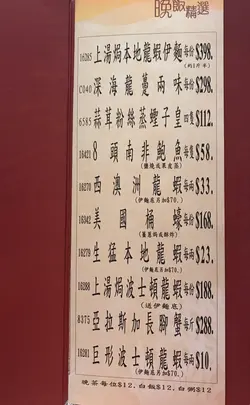 晚飯精選
16265 上湯焗本地龍蝦伊麵 每份$398.
(約1斤半)
C040 深海龍躉兩味 每份$298.
6585 蒜茸粉絲蒸蟶子皇 四隻$112.
16421 8頭南非鮑魚 每隻$58.
16270 西澳洲龍蝦 每兩$33.
(伊麵底另加$70.)
16342 美國桶蠔 每份$168.
(薑蔥焗或酥炸)
16279 生猛本地龍蝦 每兩$23.
(伊麵底另加$70.)
16288 上湯焗波士頓龍蝦 每份$188.
(送伊麵底)
8375 亞拉斯加長腳蟹 每斤$288.
16281 巨形波士頓龍蝦 每兩$10.
(伊麵底另加$70.)
晚茶每位$12、白飯$12、白粥$12